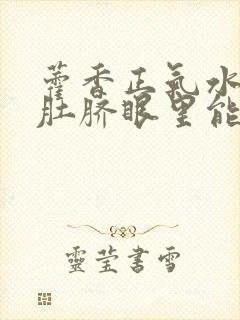 藿香正氣水
肚脐眼里能
靈莹書雪